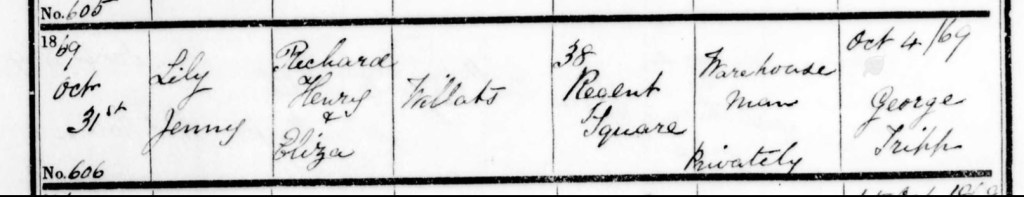 No. 605
1869
Oct
31st
Lily
Jenny
Richard
Henry
&
Eliza
Willats
38
Regent
Square
Warehouse
man
Privately
Oct 4/69
George
Tripp
No. 606